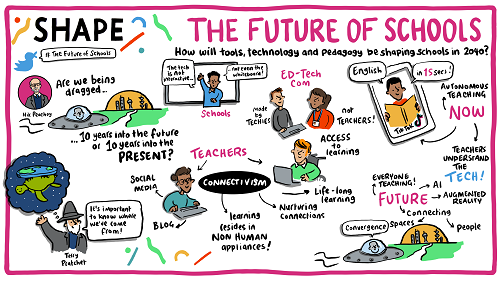 SHAPE
# The Future of Schools
THE FUTURE OF SCHOOLS
How will tools, technology and pedagogy be shaping schools in 2040?
Nik Peachey
Are we being
dragged...
... 10 years into the future
or 10 years into the
PRESENT?
The tech
is not
interactive...
...not even the
whiteboard!
Schools
ED-Tech
Com
made
by
TECHIES
not
TEACHERS!
English
in 15 secs!
Tik Tok
AUTONOMOUS
TEACHING
NOW
TEACHERS
UNDERSTAND
THE
TECH!
TEACHERS
SOCIAL
MEDIA
BLOG
CONNECTIVISM
ACCESS
to
learning
Life-long
learning
Nurturing
connections
learning
resides in
NON HUMAN
appliances!
It's important
to know where
we've come
from!
Terry
Pratchet
EVERYONE
TEACHING!
AI
FUTURE
AUGMENTED
REALITY
Connecting
Spaces
People
Convergence